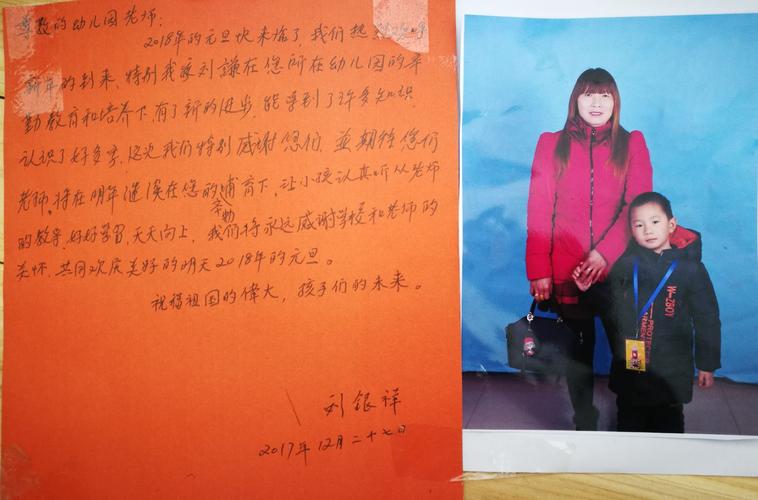 尊敬的幼儿园老师:
2018年的元旦快来临了,我们热烈
新年的到来,特别我家刘謙在您所在幼儿园的辛
勤教育和培养下,有了新的进步,能学到了许多知识
认识了好多字,这次我们特别感谢您们,並期待您们
老师,将在明年继续在您的辛勤哺育下,让小孩认真听从老师
的教导,好好学習,天天向上,我们将永远感谢学校和老师的
关怀,共同欢度美好的明天2018年的元旦。
祝福祖国的偉大,孩子们的未来。
刘银祥
2017年12月二十七日
W-Z80Y
PROTECT
ARMEN